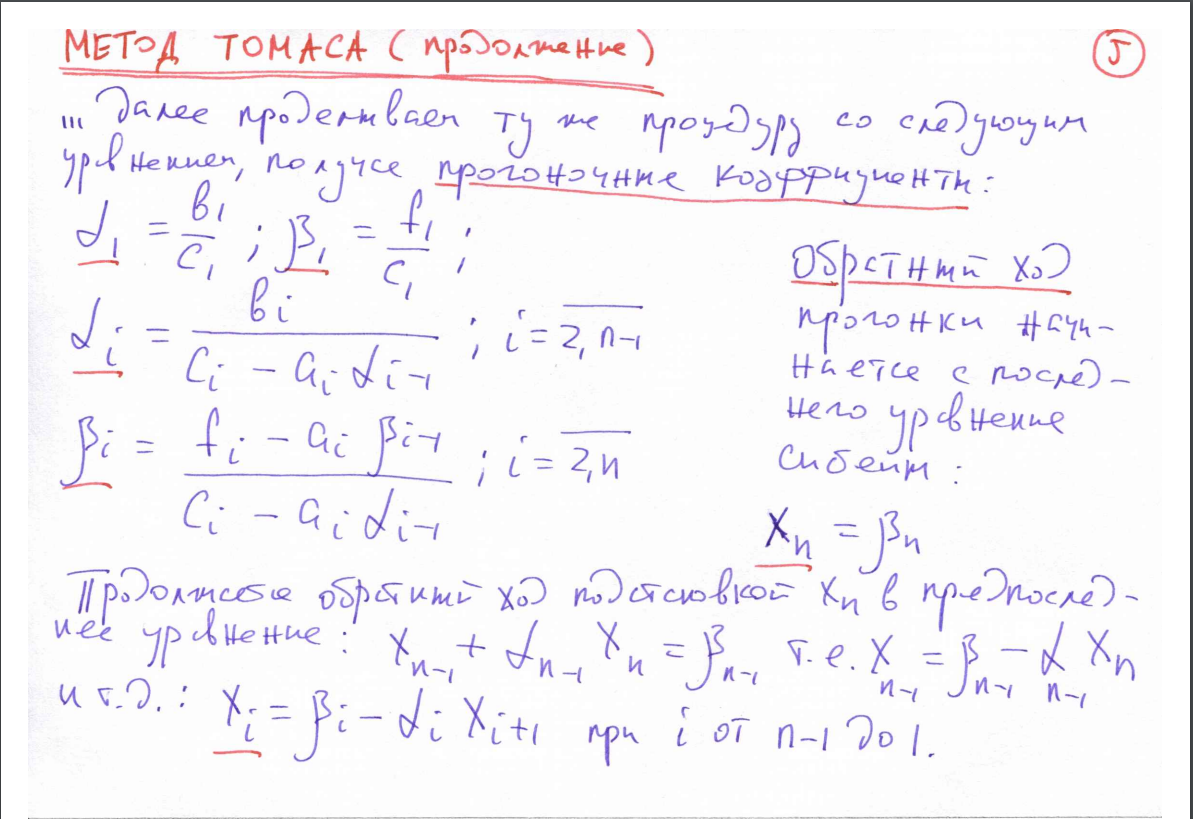 МЕТОД ТОМАСА (продолжение)
5
... далее проделываем ту же процедуру со следующим
уравнением, получая прогоночные коэффициенты:
α₁ = b₁/c₁ ; β₁ = f₁/c₁ ;
αᵢ = bᵢ / (cᵢ − aᵢ αᵢ₋₁) ; i = 2, n−1
βᵢ = (fᵢ − aᵢ βᵢ₋₁) / (cᵢ − aᵢ αᵢ₋₁) ; i = 2, n
Обратный ход
прогонки начи-
нается с послед-
него уравнения
системы :
xₙ = βₙ
Продолжаем обратный ход подстановкой xₙ в предпослед-
нее уравнение : xₙ₋₁ + αₙ₋₁ xₙ = βₙ₋₁ т.е. xₙ₋₁ = βₙ₋₁ − αₙ₋₁ xₙ
и т.д. : xᵢ = βᵢ − αᵢ xᵢ₊₁ при i от n−1 до 1.